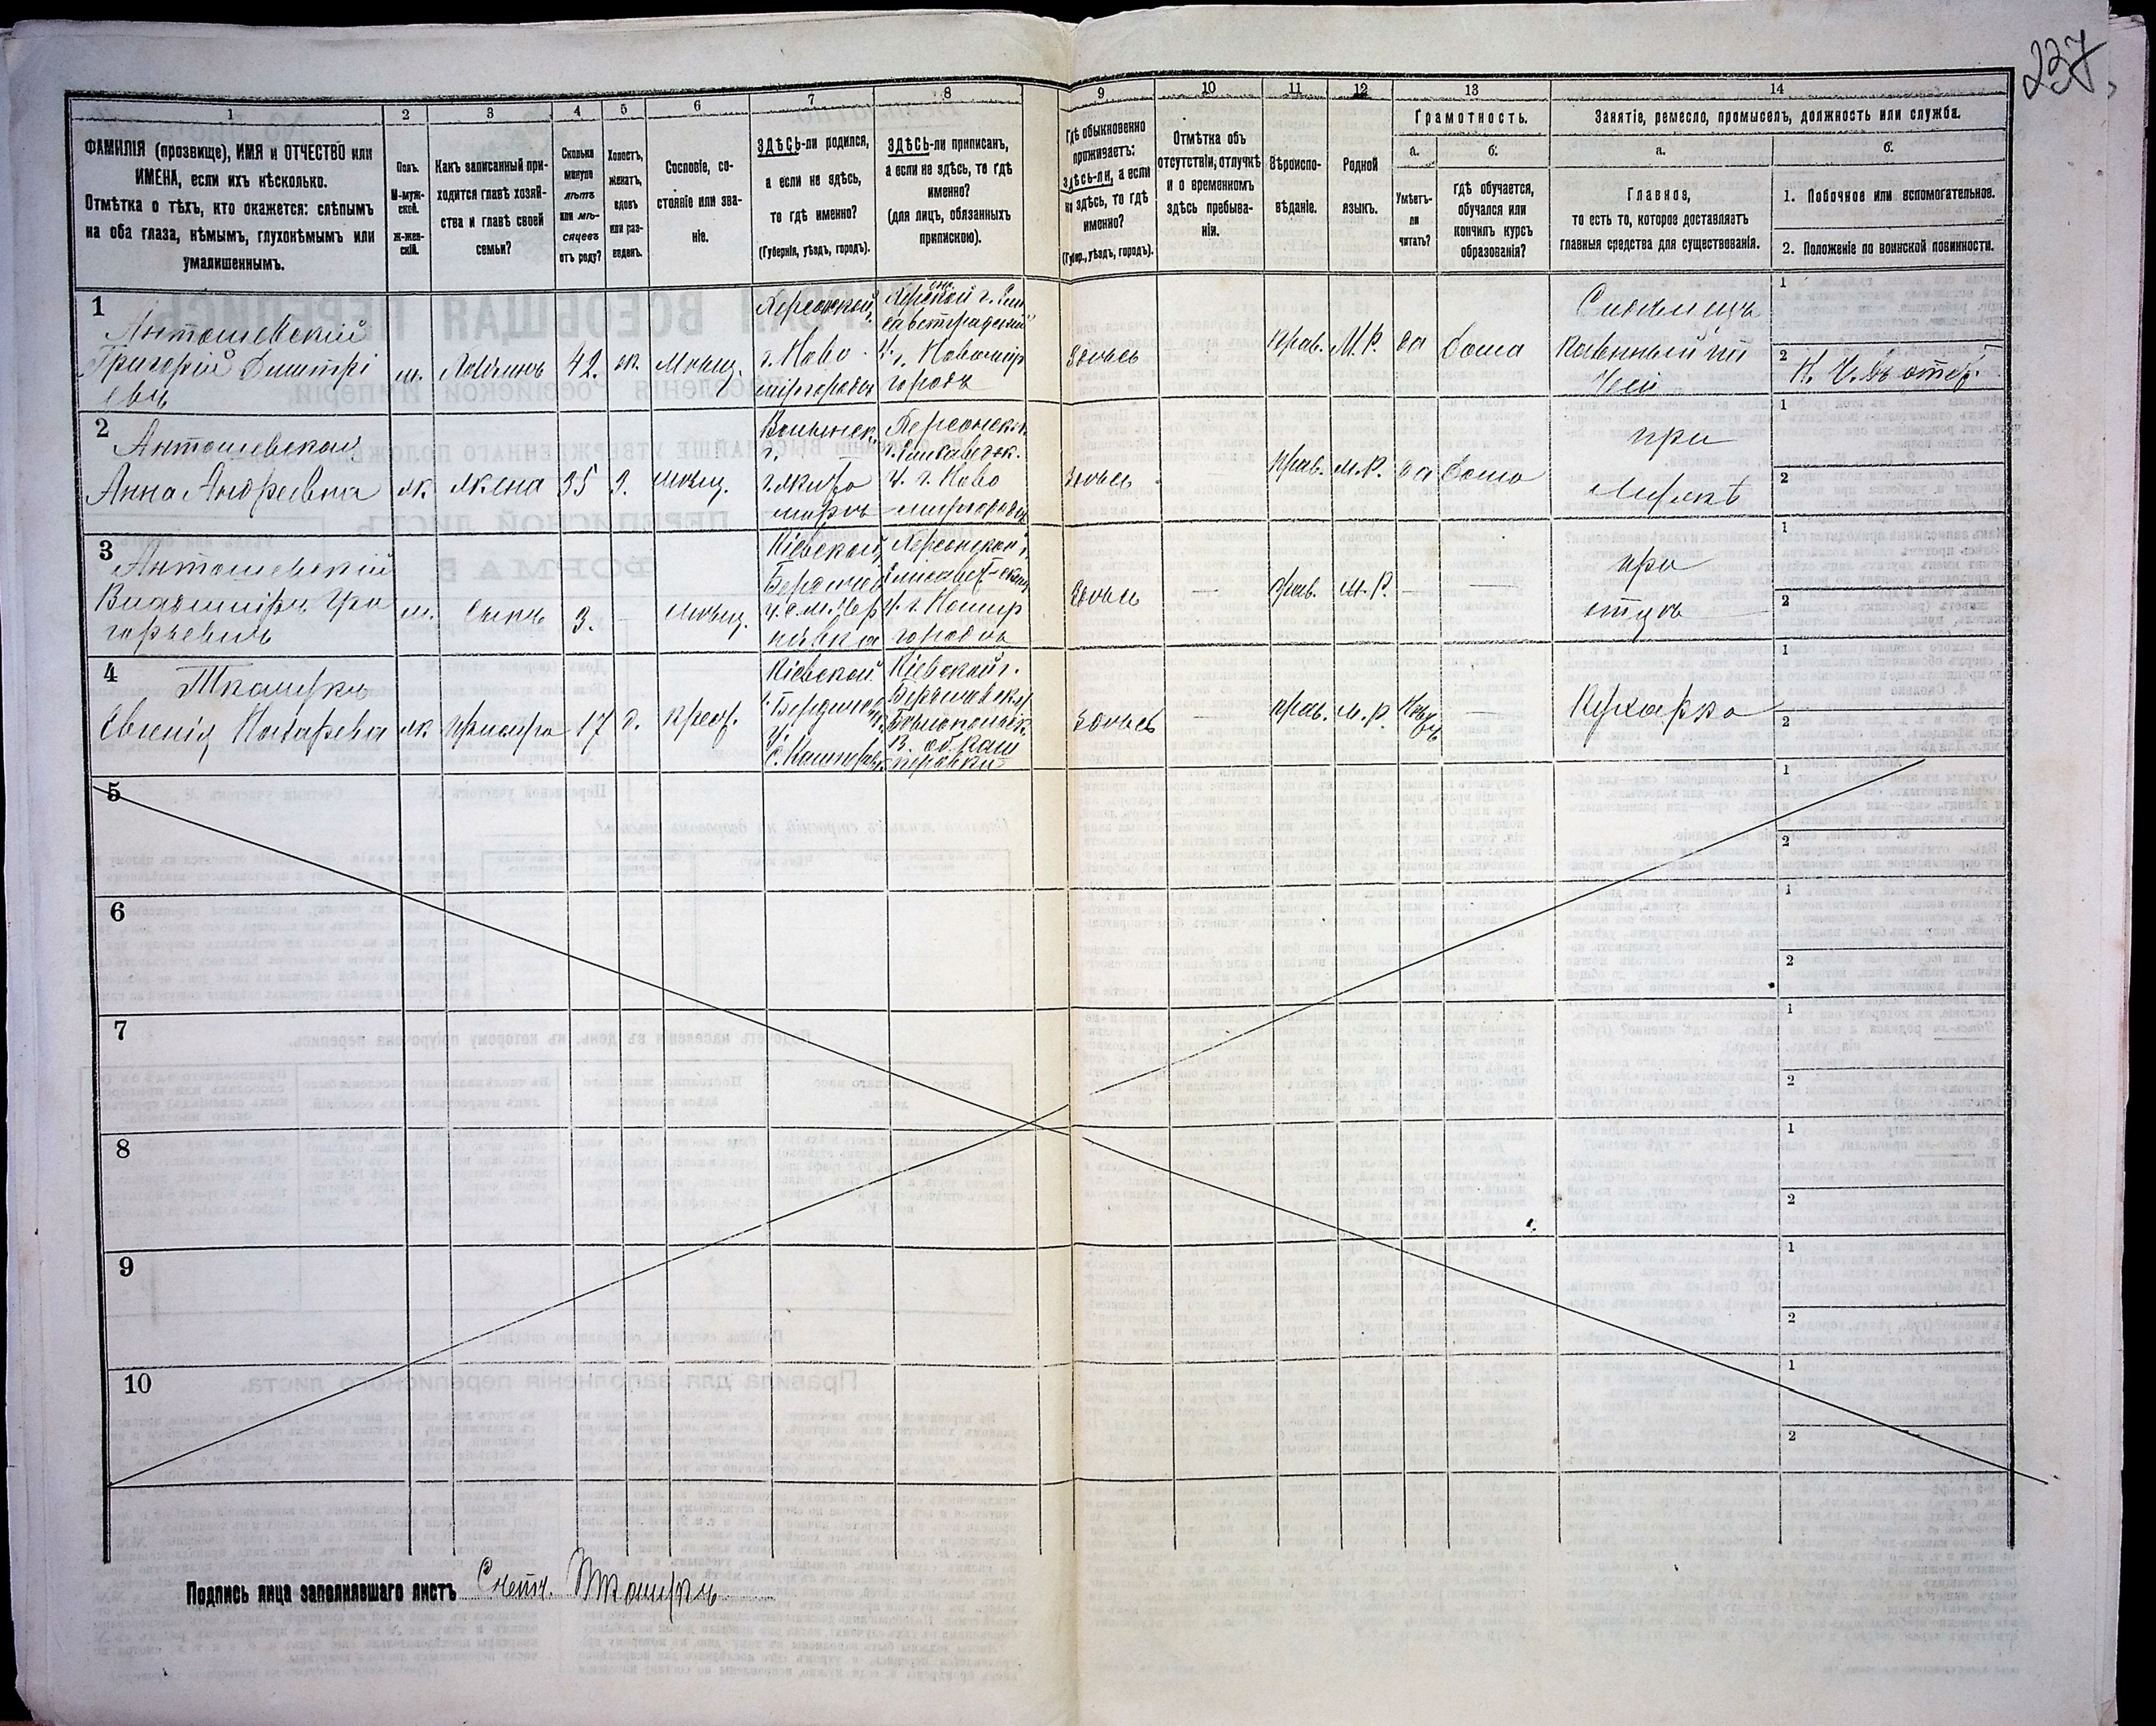 237
1
2
3
4
5
6
7
8
9
10
11
12
13
14
ФАМИЛІЯ (прозвище), ИМЯ и ОТЧЕСТВО или
ИМЕНА, если ихъ нѣсколько.
Отмѣтка о тѣхъ, кто окажется: слѣпымъ
на оба глаза, нѣмымъ, глухонѣмымъ или
умалишеннымъ.
Полъ.
М-муж-
ской.
Ж-жен-
скій.
Какъ записанный при-
ходится главѣ хозяй-
ства и главѣ своей
семьи?
Сколько
минуло
лѣтъ
или мѣ-
сяцевъ
отъ роду?
Холостъ,
женатъ,
вдовъ
или раз-
веденъ.
Сословіе, со-
стояніе или зва-
ніе.
ЗДѢСЬ-ли родился,
а если не здѣсь,
то гдѣ именно?
(Губернія, уѣздъ, городъ).
ЗДѢСЬ-ли приписанъ,
а если не здѣсь, то гдѣ
именно?
(для лицъ, обязанныхъ
припискою).
Гдѣ обыкновенно
проживаетъ:
здѣсь-ли, а если
не здѣсь, то гдѣ
именно?
(Губер., уѣздъ, городъ).
Отмѣтка объ
отсутствіи, отлучкѣ
и о временномъ
здѣсь пребыва-
ніи.
Вѣроиспо-
вѣданіе.
Родной
языкъ.
Грамотность.
а.
Умѣетъ-
ли
читать?
б.
гдѣ обучается,
обучался или
кончилъ курсъ
образованія?
Занятіе, ремесло, промыселъ, должность или служба.
а.
Главное,
то есть то, которое доставляетъ
главныя средства для существованія.
б.
1. Побочное или вспомогательное.
2. Положеніе по воинской повинности.
1
Антошевскій
Григорій Дмитрі
евъ
м.
Хозяинъ
42.
ж.
Мѣщ.
Херсонской
г. Ново-
миргородъ
Херсонской г. Ели
саветградский
у. г. Новомир
городъ
Здѣсь
Прав.
М.Р.
да
дома
1
2
2
Антошевская
Анна Андреевна
ж
жена
35
з.
мѣщ.
Волынск.
г.
г. Жито
миръ
Херсонск. г.
Елисаветск.
у. г. Ново
миргородъ
Здѣсь
Прав.
М.Р.
да
дома
при
мужѣ
1
2
3
Антошевскій
Владиміръ Гри
горьевичъ
м.
сынъ
3.
-
мѣщ.
Кіевской
Бердичев
Херсонской г.
Здѣсь
—
прав.
М.Р.
—
—
при
отцѣ
1
2
4
Ткачукъ
Евгенія
ж
17
д.
крест.
Кіевской
Бердичев
Кіевской г.
Здѣсь
—
прав.
М.Р.
—
Кухарка
1
2
5
1
2
6
1
2
7
1
2
8
1
2
9
1
2
10
1
2
Подпись лица заполнявшаго листъ Счетч. Ткачукъ